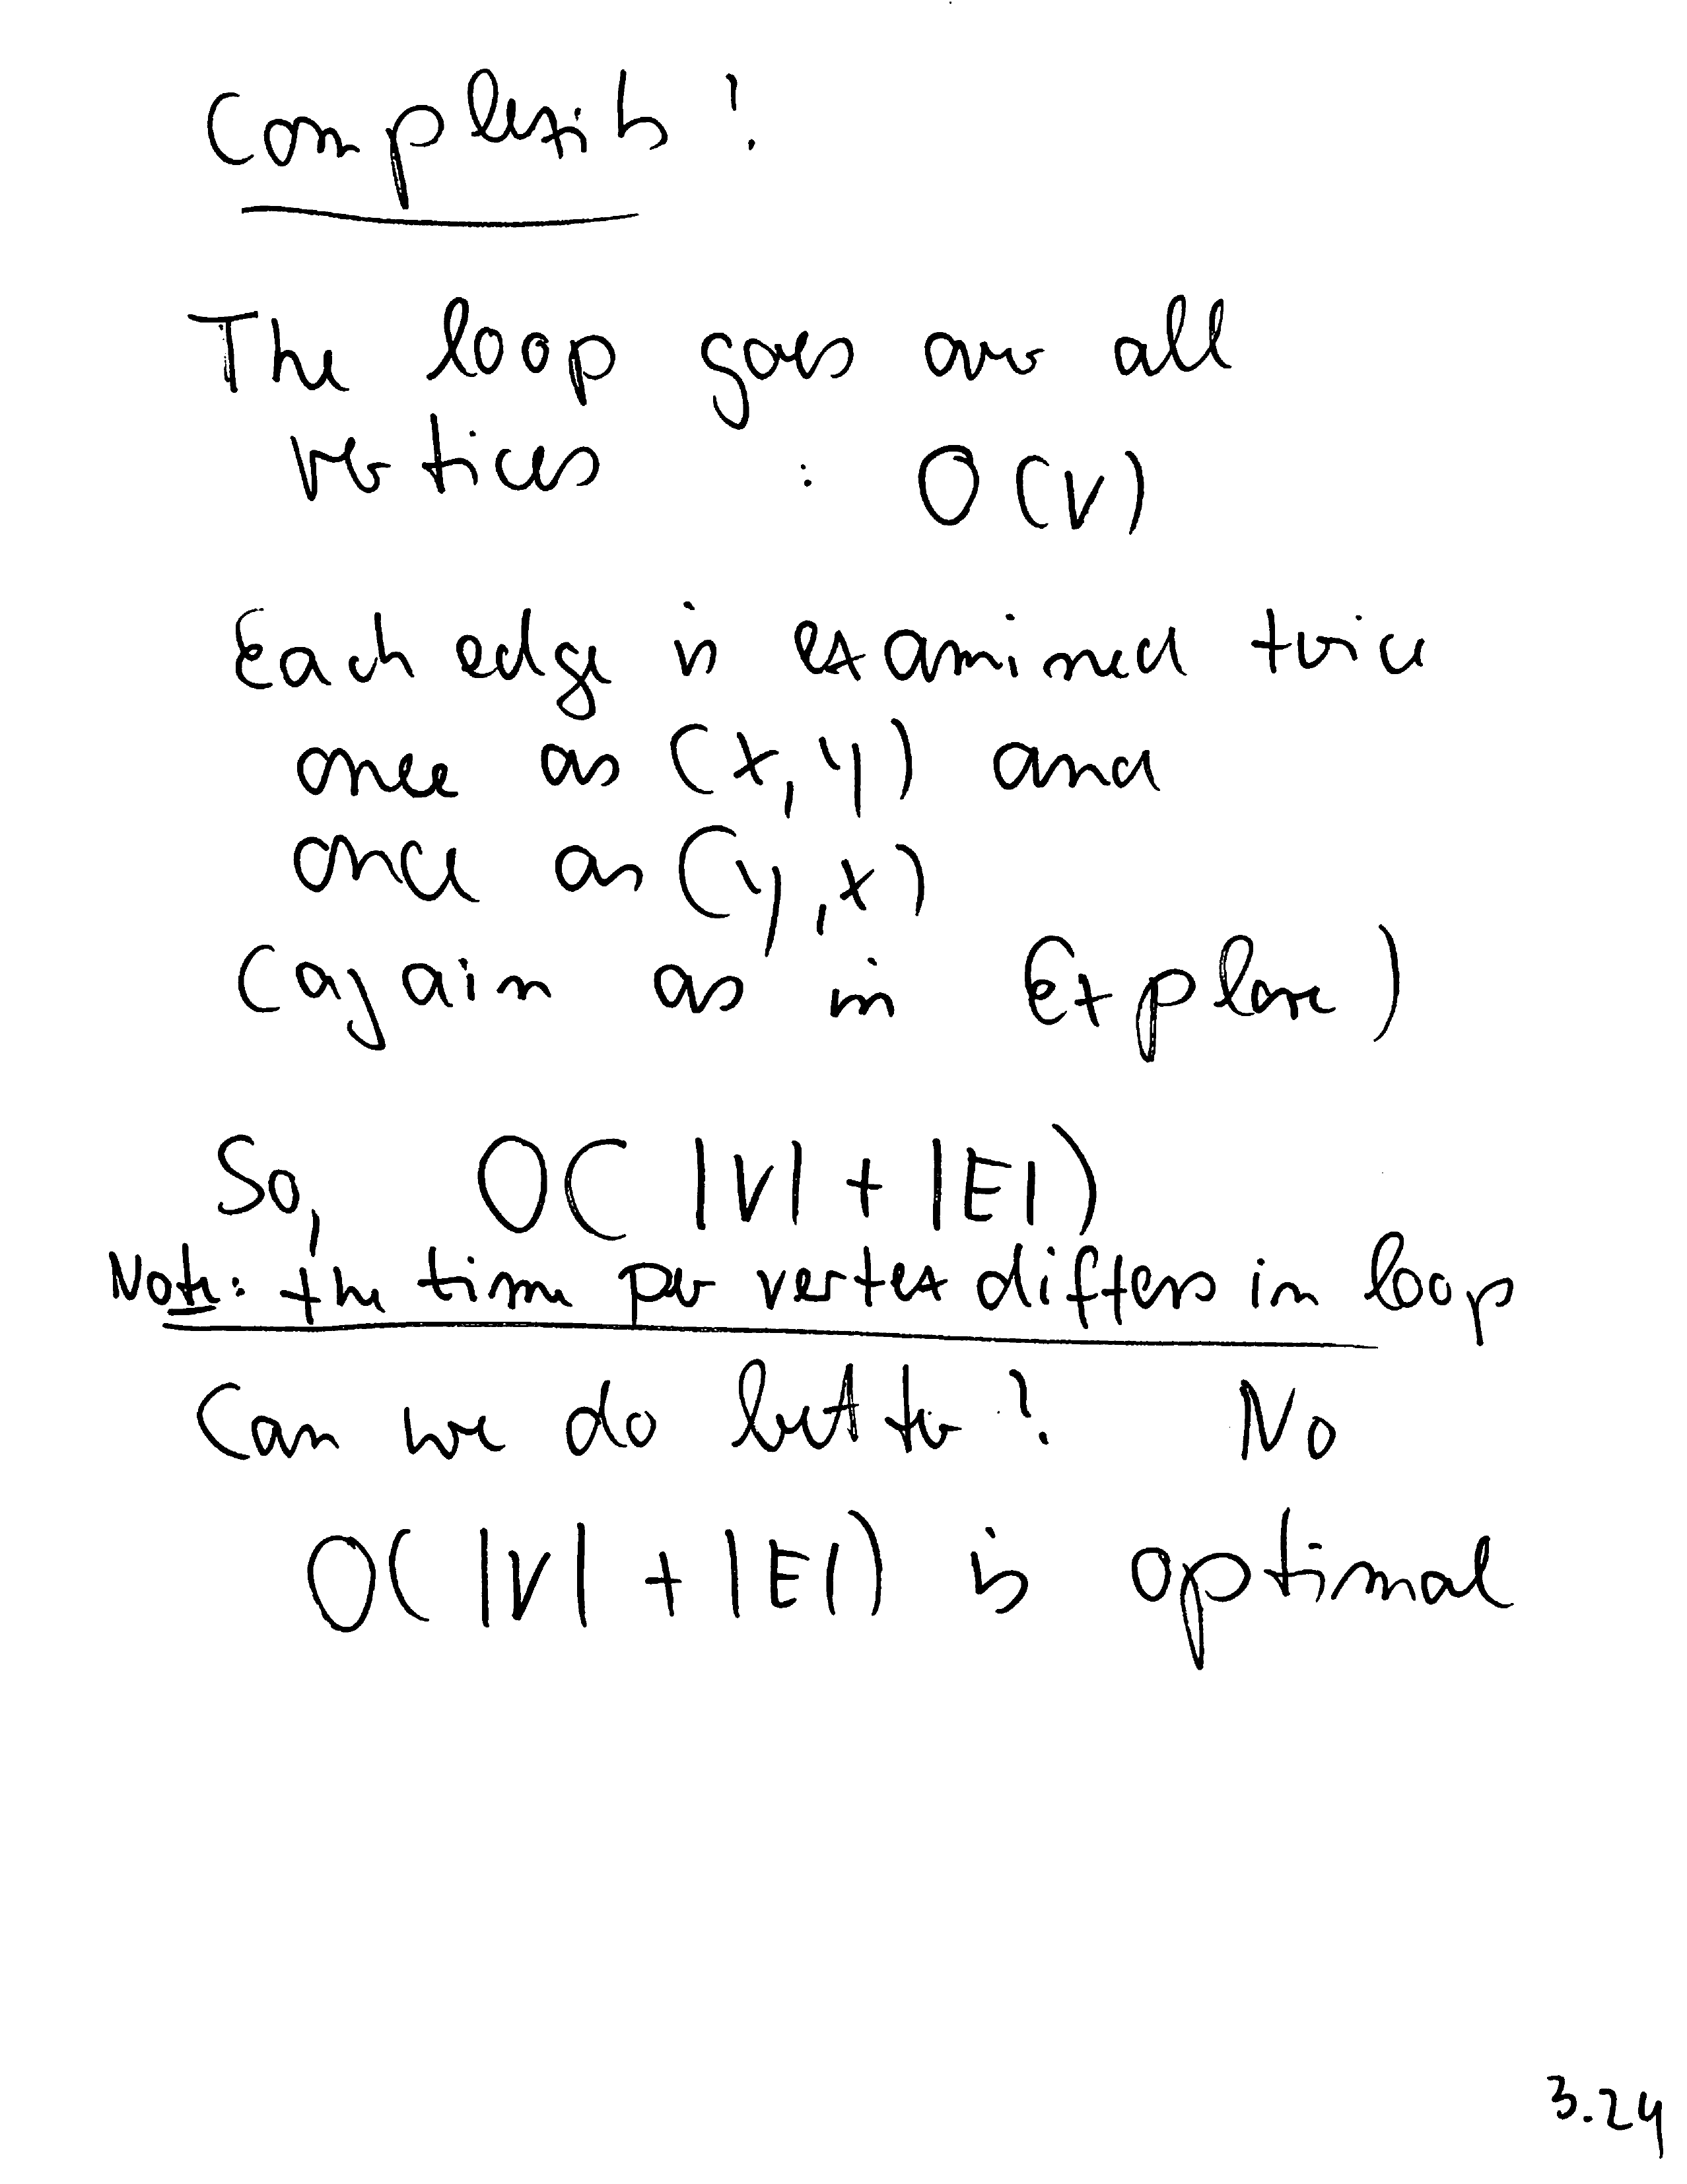 Complexity?
The loop goes over all
vertices : O(V)
Each edge is examined twice
once as (x,y) and
once as (y,x)
(again as in Explore)
So, O( |V| + |E| )
Note: the time per vertex differs in loop
Can we do better? No
O( |V| + |E| ) is optimal
3.24